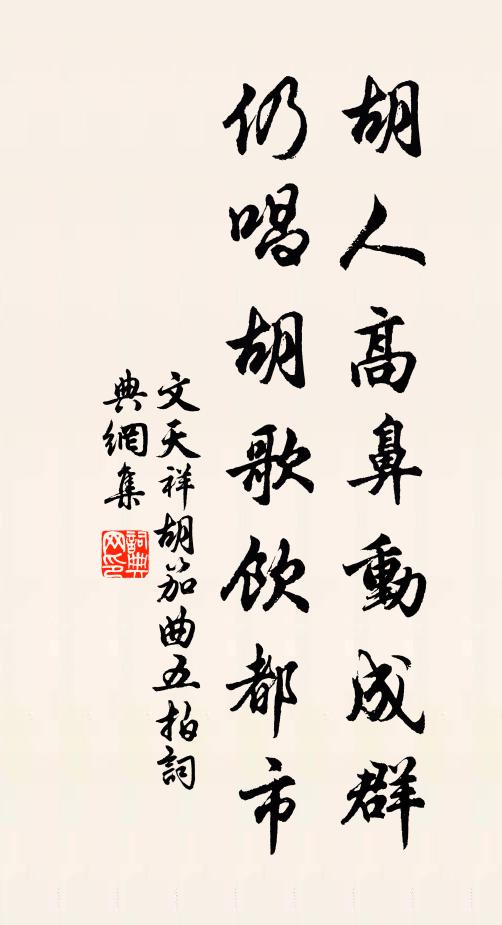 胡人高鼻動成群
仍唱胡歌飲都市
文天祥胡笳曲五拍詞
典網集
詞典
网印